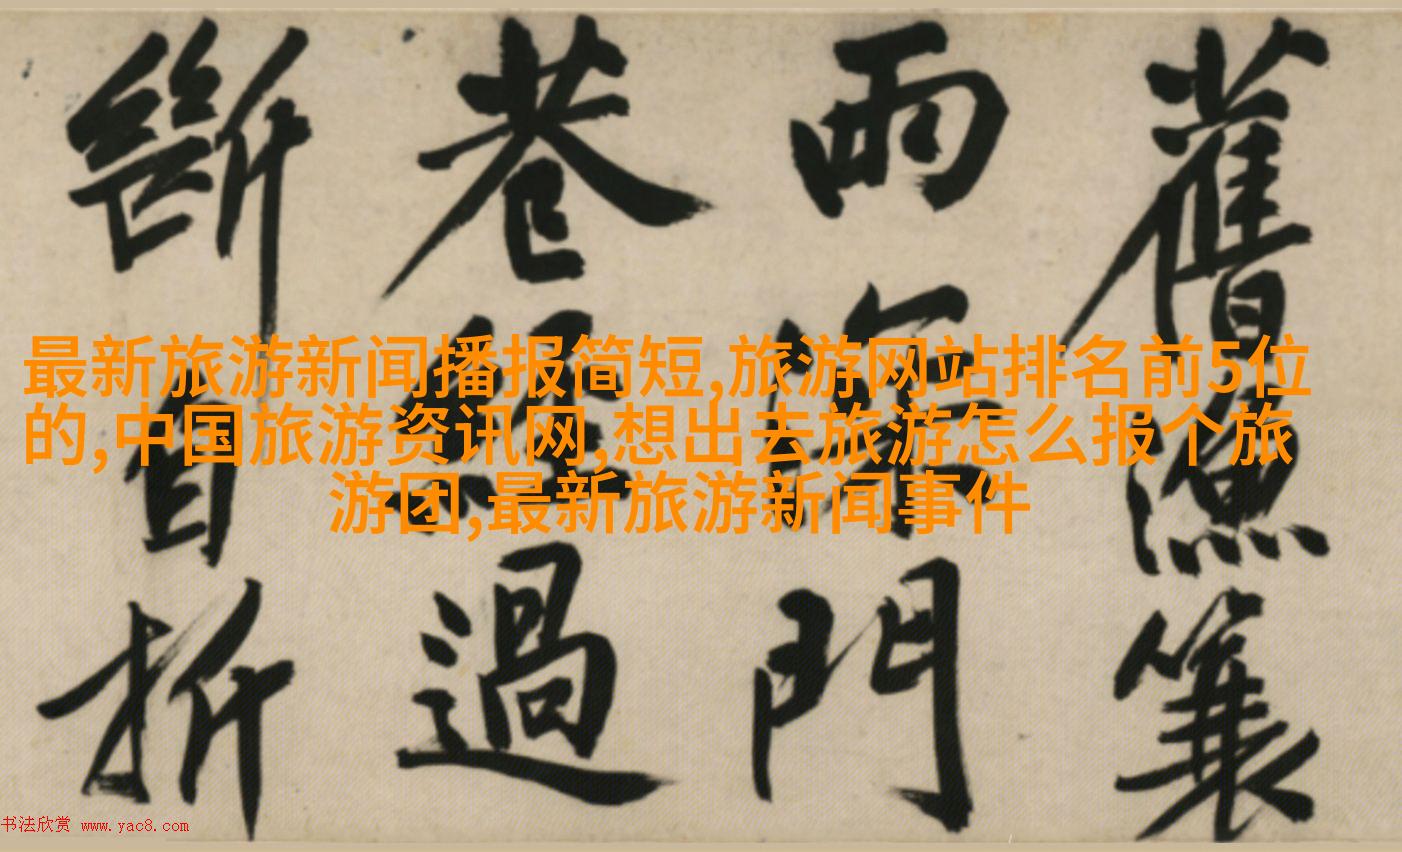 舊漁簑
雨門
巷經過
斷自折
最新旅游新闻播报简短,旅游网站排名前5位
的,中国旅游资讯网,想出去旅游怎么报个旅
游团,最新旅游新闻事件
书法欣赏 www.yac8.com